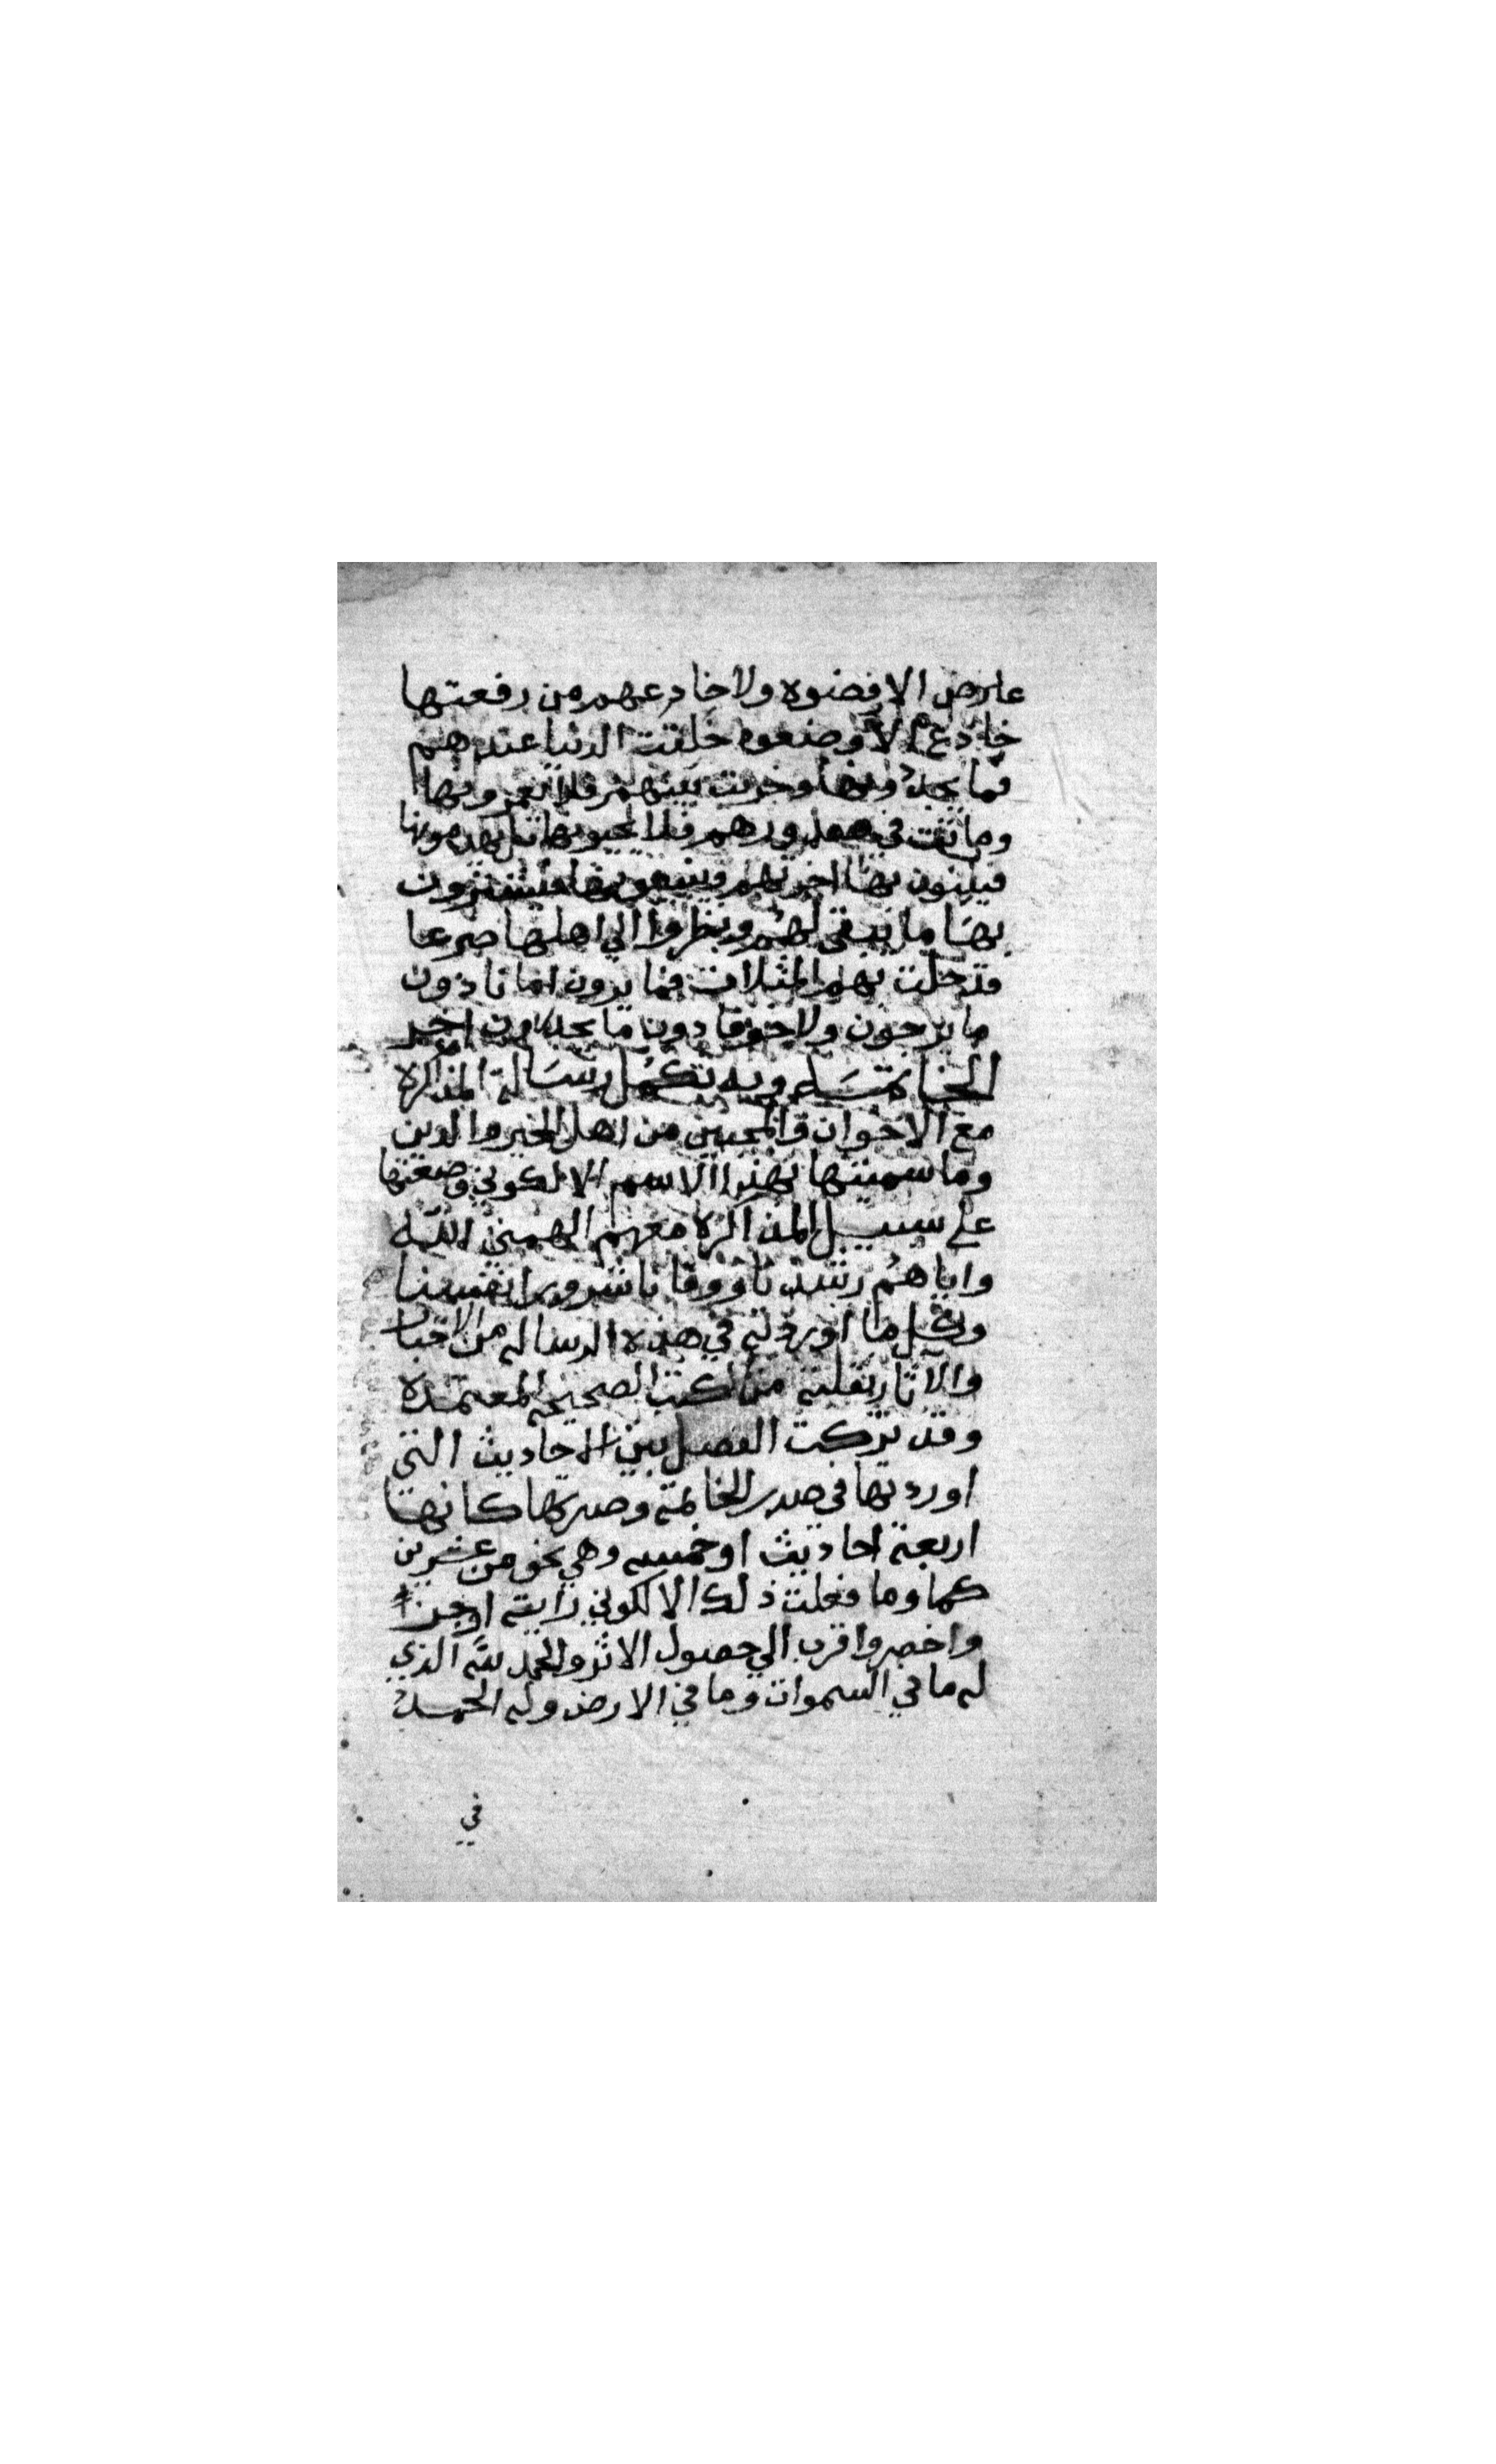 عارض الا رفضوه ولا خادعهم من رفعتها
خادع الا وضعوه خلقت الدنيا عندهم
فما يجددونها وخربت بينهم فلا يعمرونها
وماتت في صدورهم فلا يحيونها بل يهدمونها
فيبنون بها اخرتهم ويبيعونها فيشترون
بها ما يبقى لهم ونظروا الي اهلها صرعا
قد حلت بهم المثلات فما يرون امانا دون
ما يرجون ولا خوفا دون ما يحذرون اخر
الخاتمة وبه تكمل رسالة المذاكرة
مع الاخوان والمحبين من اهل الخير والدين
وما سميتها بهذا الاسم الا لكوني وضعتها
على سبيل المذاكرة معهم الهمني الله
واياهم رشدنا ووقانا شرور انفسنا
وكل ما اوردته في هذه الرساله من الاخبار
والآثار نقلته من الكتب الصحيحه المعتمدة
وقد تركت الفصل بين الاحاديث التي
اوردتها في صدر الخاتمة وصيرتها كانها
اربعة احاديث او خمسه وهي نحو من عشرين
كما وما فعلت ذلك الا لكوني رايته اوجز
واخصر واقرب الي حصول الاثر والحمد لله الذي
له ما في السموات وما في الارض وله الحمد
في